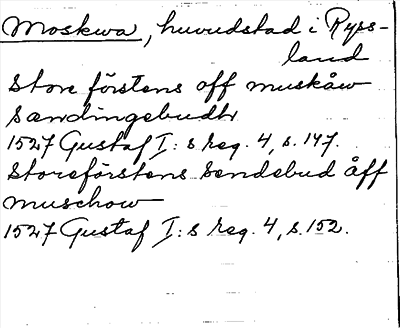 Moskwa, huvudstad i Ryss-
land
Store förstens off muskåw
Sændingebudh
1527 Gustaf I:s reg. 4, s. 147.
Storeförstens Sendebud åff
muschow
1527 Gustaf I:s reg. 4, s. 152.